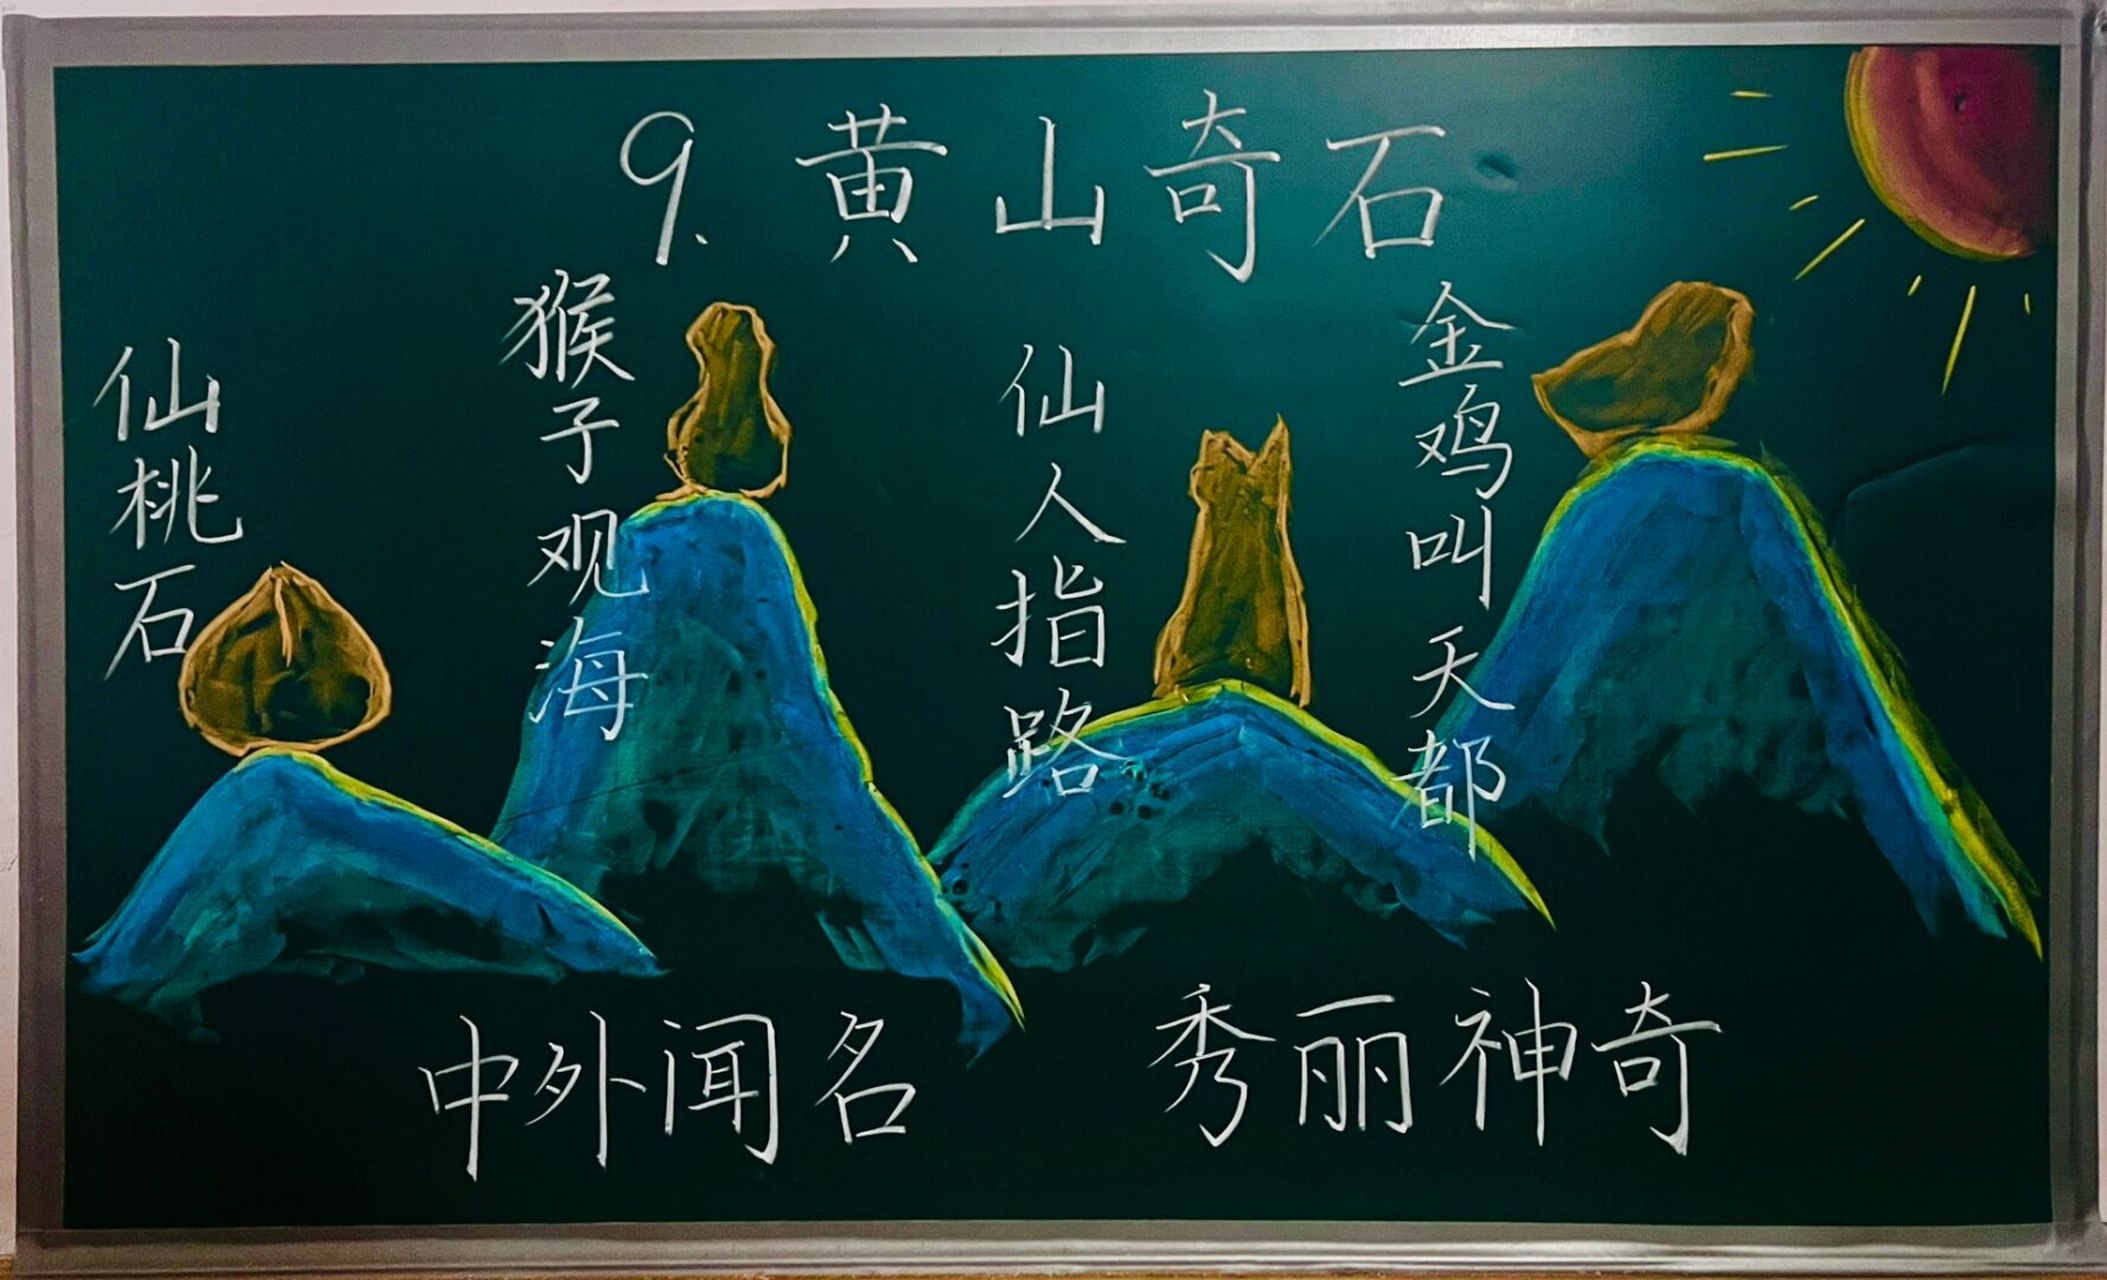 9. 黄山奇石
仙桃石
猴子观海
仙人指路
金鸡叫天都
中外闻名
秀丽神奇